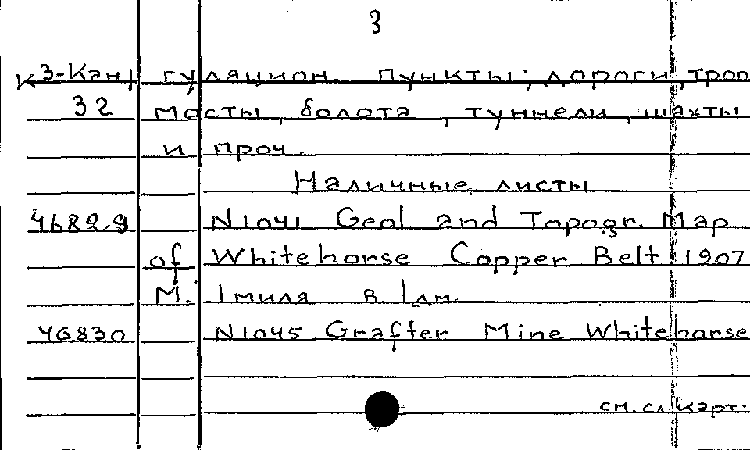 3
К3-Кан гуляцион. пункты; дороги, троп
32 мосты, болота, туннели, шахты
и проч.
Наличные листы
46829 N1041 Geol and Topogr. Map
of Whitehorse Copper Belt 1907
М. 1миля в 1дм.
46830 N1045 Grafter Mine Whitehorse
см. сл карт.